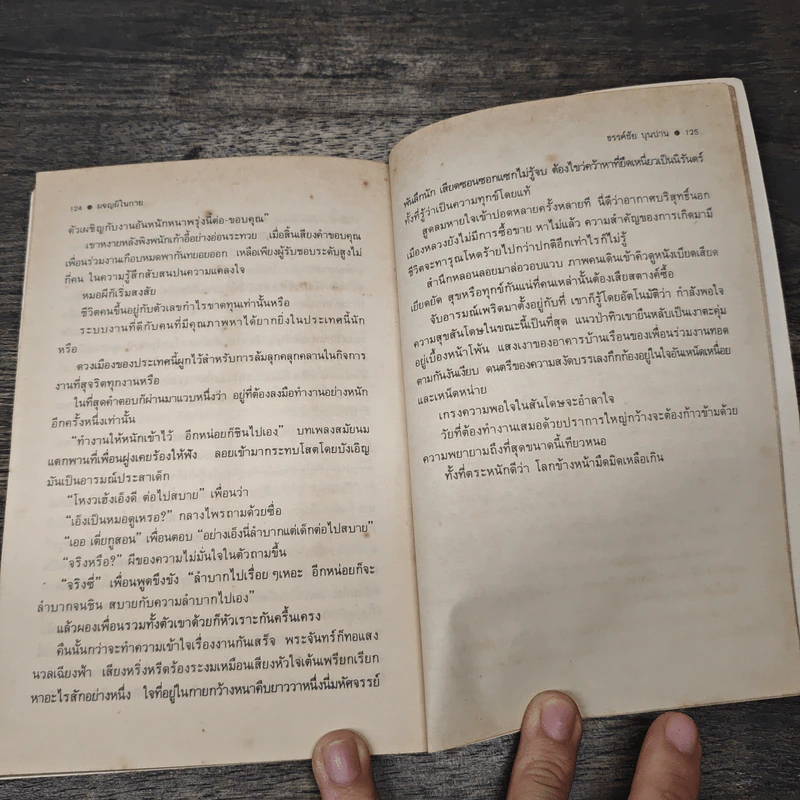 124 ● ผจญผีในกาย
ตัวเผชิญกับงานอันหนักหนาพรุ่งนี้ต่อ-ขอบคุณ"
เขาหงายหลังพิงพนักเก้าอี้อย่างอ่อนระทวย เมื่อสิ้นเสียงคำขอบคุณ
เพื่อนร่วมงานเกือบหมดพากันทยอยออก เหลือเพียงผู้รับชอบระดับสูงไม่
กี่คน ในความรู้สึกสับสนปนความแคลงใจ
หมอผีก็เริ่มสงสัย
ชีวิตคนขึ้นอยู่กับตัวเลขกำไรขาดทุนเท่านั้นหรือ
ระบบงานที่ดีกับคนที่มีคุณภาพหาได้ยากยิ่งในประเทศนี้นัก
หรือ
ดวงเมืองของประเทศนี้ผูกไว้สำหรับการล้มลุกคลุกคลานในกิจการ
งานที่สุจริตทุกงานหรือ
ในที่สุดคำตอบก็ผ่านมาแวบหนึ่งว่า อยู่ที่ต้องลงมือทำงานอย่างหนัก
อีกครั้งหนึ่งเท่านั้น
"ทำงานให้หนักเข้าไว้ อีกหน่อยก็ชินไปเอง" บทเพลงสมัยนม
แตกพานที่เพื่อนฝูงเคยร้องให้ฟัง ลอยเข้ามากระทบโสตโดยบังเอิญ
มันเป็นอารมณ์ประสาเด็ก
"โหงวเฮ้งเอ็งดี ต่อไปสบาย" เพื่อนว่า
"เอ็งเป็นหมอดูเหรอ?" กลางไพรถามด้วยซื่อ
"เออ เตี่ยกูสอน" เพื่อนตอบ "อย่างเอ็งนี่ลำบากแต่เด็กต่อไปสบาย"
"จริงหรือ?" ผีของความไม่มั่นใจในตัวถามขึ้น
"จริงซี่" เพื่อนพูดขึงขัง "ลำบากไปเรื่อยๆ เหอะ อีกหน่อยก็จะ
ลำบากจนชิน สบายกับความลำบากไปเอง"
แล้วผองเพื่อนรวมทั้งตัวเขาด้วยก็หัวเราะกันครื้นเครง
คืนนั้นกว่าจะทำความเข้าใจเรื่องงานกันเสร็จ พระจันทร์ก็ทอแสง
นวลเฉียงฟ้า เสียงหริ่งหรีดร้องระงมเหมือนเสียงหัวใจเต้นเพรียกเรียก
หาอะไรสักอย่างหนึ่ง ใจที่อยู่ในกายกว้างหนาคืบยาววาหนึ่งนี่มหัศจรรย์
ธรรค์ชัย บุนปาน ● 125
พันลึกนัก เสียดซอนซอกแซกไม่รู้จบ ต้องไขว่คว้าหาที่ยึดเหนี่ยวเป็นนิรันดร์
ทั้งที่รู้ว่าเป็นความทุกข์โดยแท้
สูดลมหายใจเข้าปอดหลายครั้งหลายที นี่ดีว่าอากาศบริสุทธิ์นอก
เมืองหลวงยังไม่มีการซื้อขาย หาไม่แล้ว ความสำคัญของการเกิดมามี
ชีวิตจะทารุณโหดร้ายไปกว่าปกติอีกเท่าไรก็ไม่รู้
สำนึกหลอนลอยมาล่อวอบแวบ ภาพคนเดินเข้าคิวดูหนังเบียดเสียด
เยียดยัด สุขหรือทุกข์กันแน่ที่คนเหล่านั้นต้องเสียสตางค์ซื้อ
จับอารมณ์เพริดมาตั้งอยู่กับที่ เขาก็รู้โดยอัตโนมัติว่า กำลังพอใจ
ความสุขสันโดษในขณะนี้เป็นที่สุด แนวป่าทิวเขายืนหลับเป็นเงาตะคุ่ม
อยู่เบื้องหน้าโพ้น แสงเงาของอาคารบ้านเรือนของเพื่อนร่วมงานทอด
ตามกันงันเงียบ ดนตรีของความสงัดบรรเลงกึกก้องอยู่ในใจอันเหน็ดเหนื่อย
และเหน็ดหน่าย
เกรงความพอใจในสันโดษจะอำลาใจ
วัยที่ต้องทำงานเสมอด้วยปราการใหญ่กว้างจะต้องก้าวข้ามด้วย
ความพยายามถึงที่สุดขนาดนี้เทียวหนอ
ทั้งที่ตระหนักดีว่า โลกข้างหน้ามืดมิดเหลือเกิน